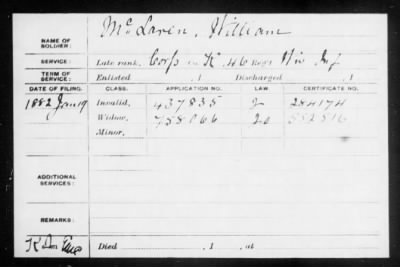 McLaren, William
NAME OF SOLDIER:
SERVICE: Late rank, Corp in K, 46 Reg't Wis Inf
TERM OF SERVICE: Enlisted , 1 Discharged , 1
DATE OF FILING. CLASS. APPLICATION NO. LAW. CERTIFICATE NO.
1882 Jan 19 Invalid, 437835 284174
Widow, 758066 552516
Minor,
ADDITIONAL SERVICES:
REMARKS:
Died , 1 , at